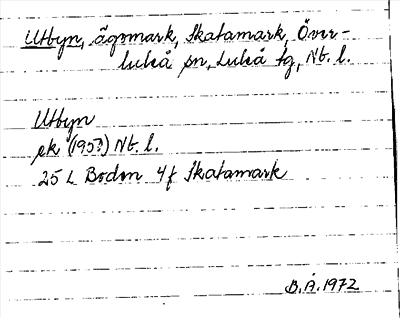 Utbyn, ägomark, Skatamark, Över-
luleå sn, Luleå tg, Nb. l.
Utbyn
ek (1953) Nb. l.
25 L Boden 4f Skatamark
B.Å. 1972